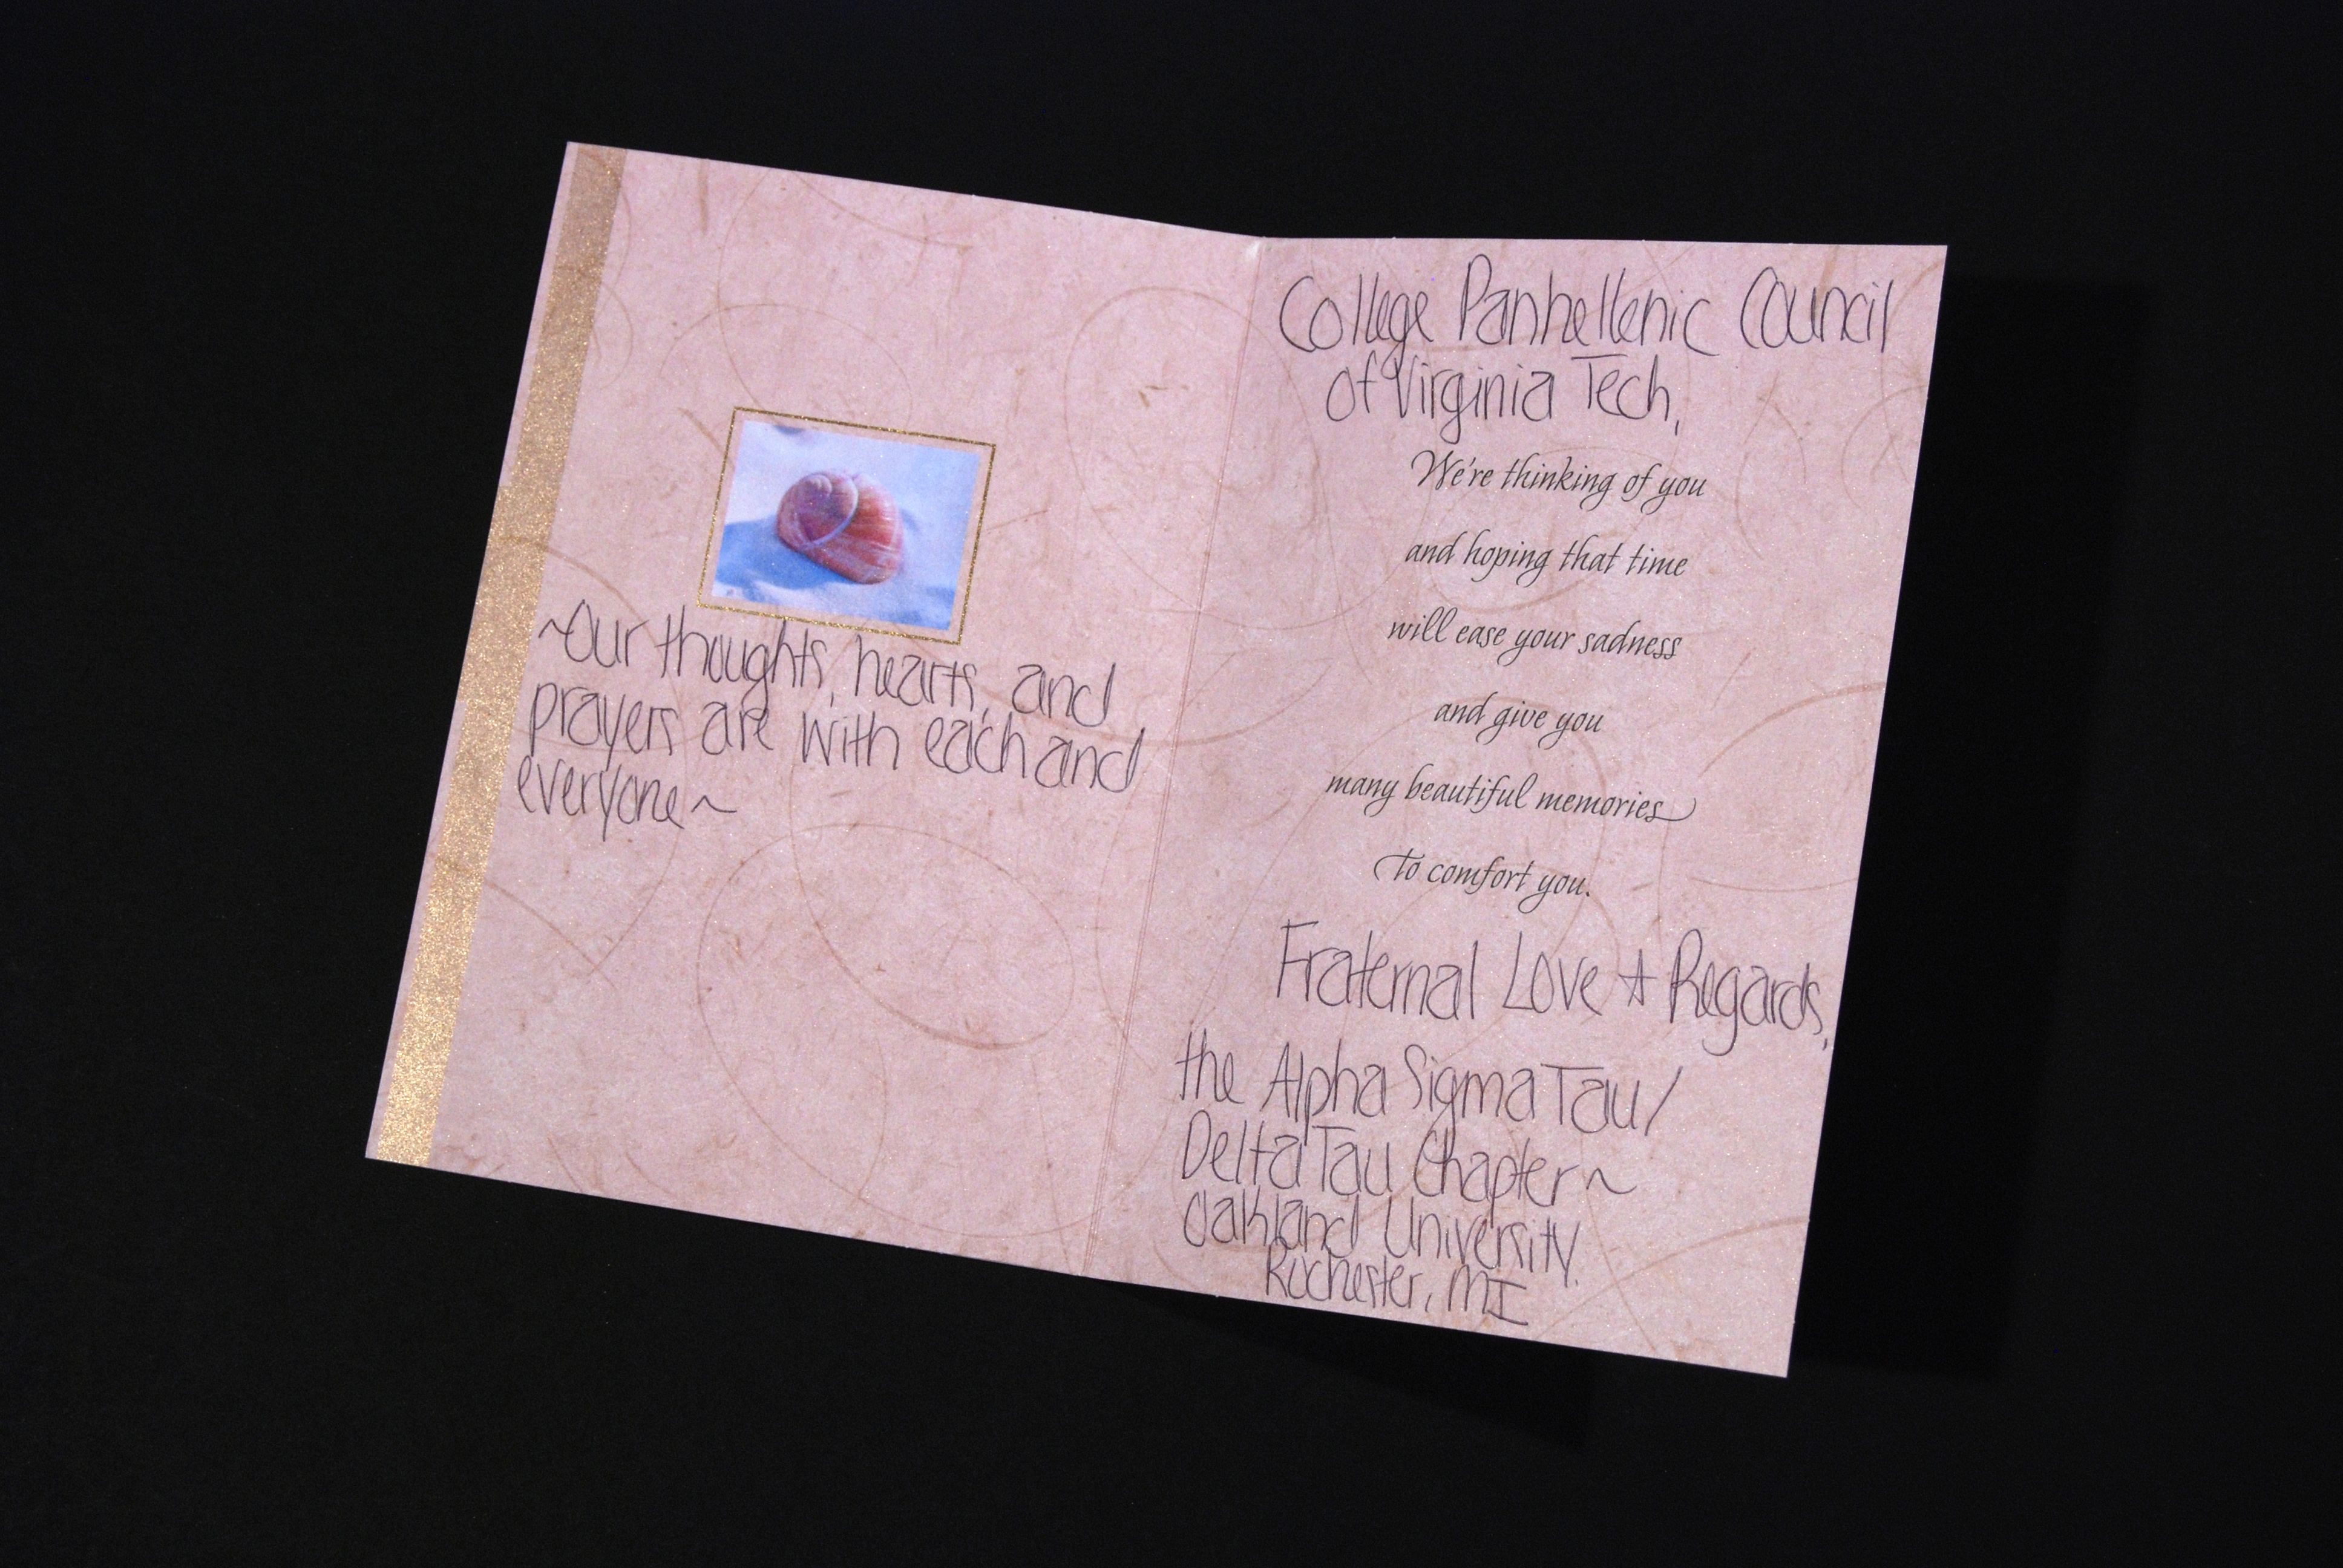 ~Our thoughts, hearts, and
prayers are with each and
everyone~
College Panhellenic Council
of Virginia Tech,
We're thinking of you
and hoping that time
will ease your sadness
and give you
many beautiful memories
to comfort you.
Fraternal Love & Regards,
the Alpha Sigma Tau/
Delta Tau Chapter~
Oakland University.
Rochester, MI